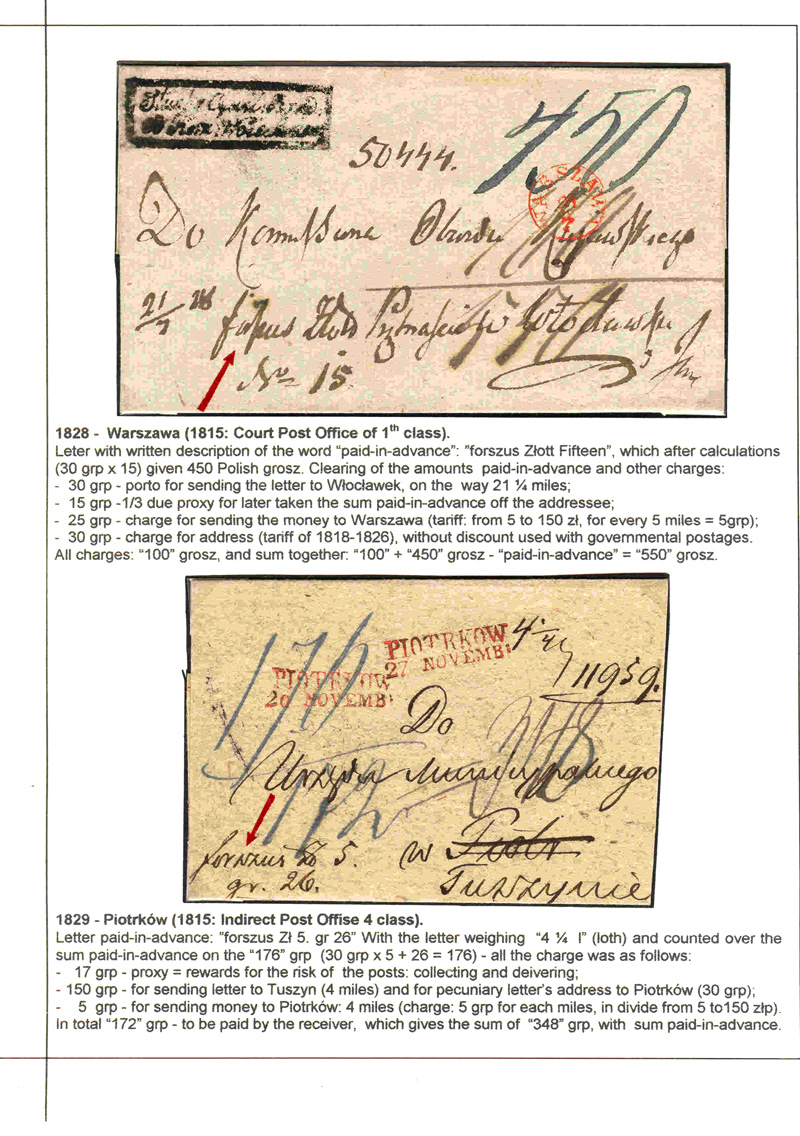 50444.
450
WARSZAWA
Do Komissarza Obwodu Kujawskiego
21/7 28 forszus Złoto Piętnaście w Włocławku
No 15.
1828 - Warszawa (1815: Court Post Office of 1th class).
Leter with written description of the word “paid-in-advance”: ”forszus Złott Fifteen”, which after calculations
(30 grp x 15) given 450 Polish grosz. Clearing of the amounts paid-in-advance and other charges:
- 30 grp - porto for sending the letter to Włocławek, on the way 21 ¼ miles;
- 15 grp -1/3 due proxy for later taken the sum paid-in-advance off the addressee;
- 25 grp - charge for sending the money to Warszawa (tariff: from 5 to 150 zł, for every 5 miles = 5grp);
- 30 grp - charge for address (tariff of 1818-1826), without discount used with governmental postages.
All charges: “100” grosz, and sum together: “100” + “450” grosz - “paid-in-advance” = “550” grosz.
PIOTRKOW
27 NOVEMB:
PIOTRKOW
20 NOVEMB:
11959.
176
Do
348
Urzędu Municypalnego
172
forszus Zł 5. w Piotr
gr. 26. Tuszynie
1829 - Piotrków (1815: Indirect Post Offise 4 class).
Letter paid-in-advance: ”forszus Zł 5. gr 26” With the letter weighing “4 ¼ l” (loth) and counted over the
sum paid-in-advance on the “176” grp (30 grp x 5 + 26 = 176) - all the charge was as follows:
- 17 grp - proxy = rewards for the risk of the posts: collecting and deivering;
- 150 grp - for sending letter to Tuszyn (4 miles) and for pecuniary letter’s address to Piotrków (30 grp);
- 5 grp - for sending money to Piotrków: 4 miles (charge: 5 grp for each miles, in divide from 5 to150 złp).
In total “172” grp - to be paid by the receiver, which gives the sum of “348” grp, with sum paid-in-advance.